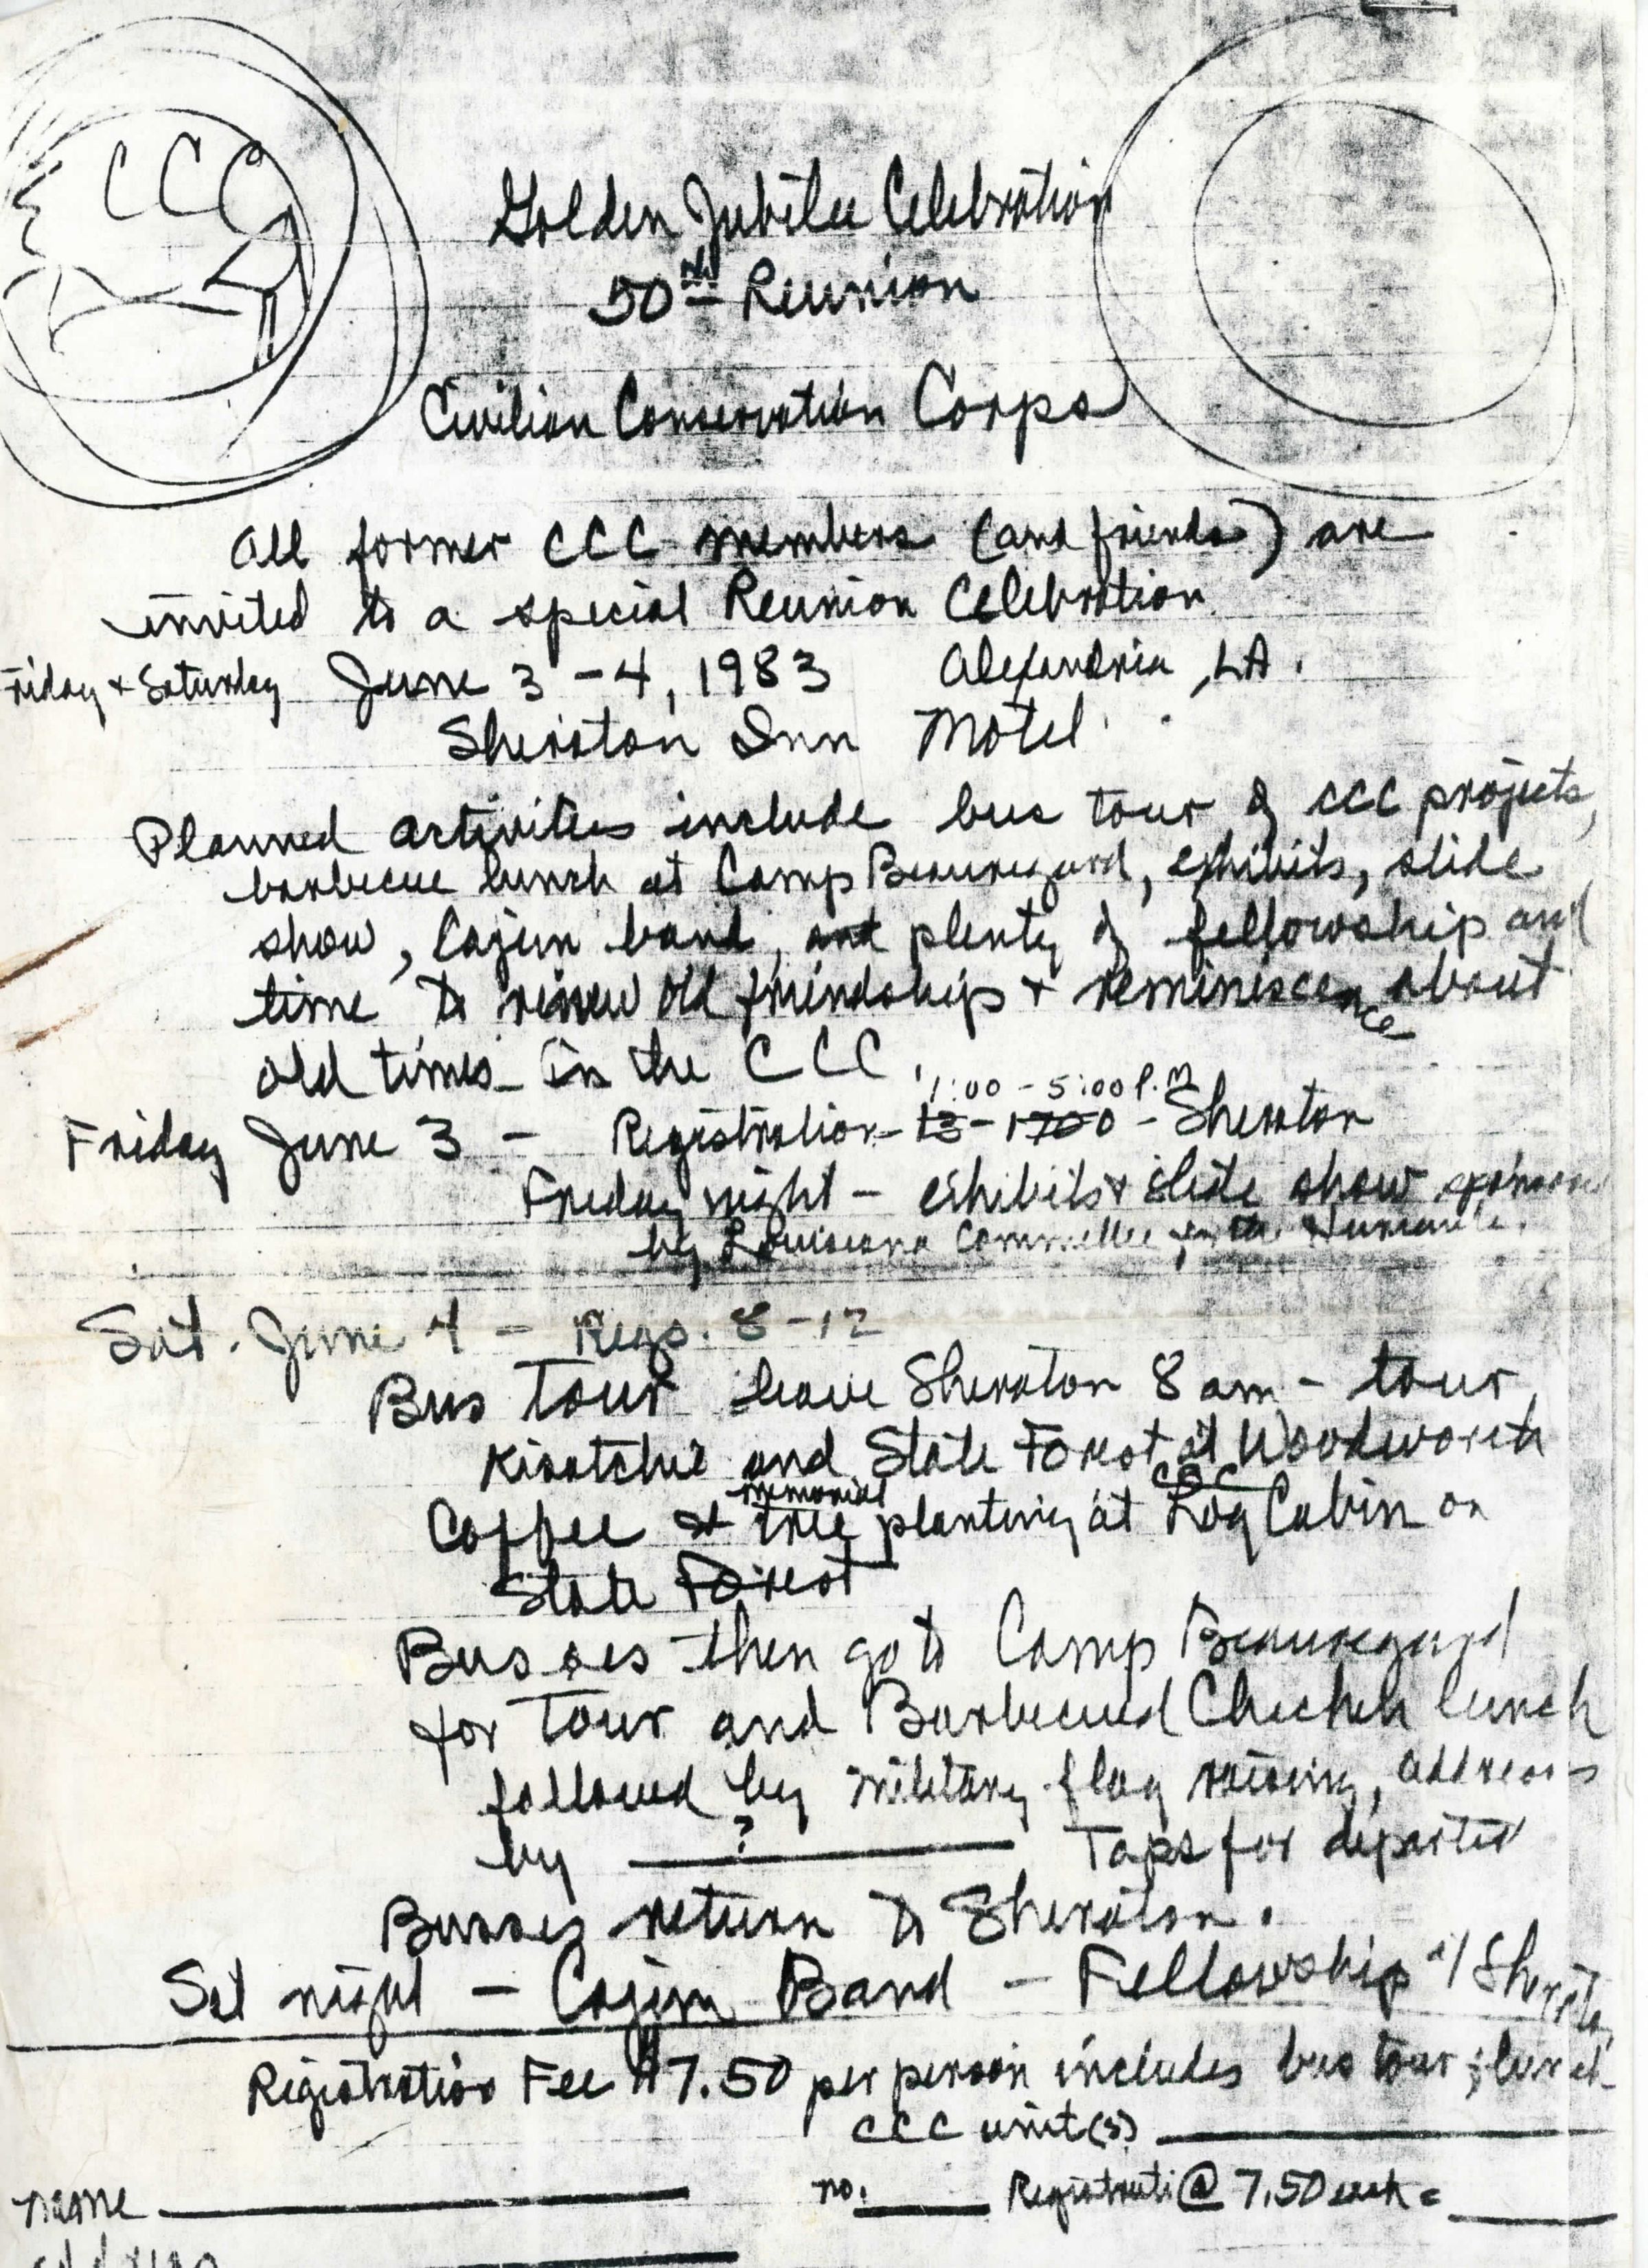 CCC
Golden Jubilee Celebration
50th Reunion
Civilian Conservation Corps
All former CCC members (and friends) are
invited to a special Reunion Celebration.
Friday + Saturday June 3-4, 1983 Alexandria, LA.
Sheraton Inn Motel
Planned activities include bus tour of CCC projects,
barbecue lunch at Camp Beauregard, exhibits, slide
show, Cajun band, and plenty of fellowship and
time to renew old friendships + reminiscence about
old times in the CCC.
1:00 - 5:00 P.M
Friday June 3 - Registration - 13-1700 - Sheraton
Friday night - exhibits + slide show sponsored
by Louisiana Committee for the Humanities.
Sat. June 4 - Regs. 8-12
Bus Tour leave Sheraton 8 am - tour
Kisatchie and State Forest at Woodworth
memorial CCC
Coffee & tree planting at Log Cabin on
State Forest
Busses then go to Camp Beauregard
for Tour and Barbecued Chicken lunch
followed by military flag raising, address
by ? Taps for departed
Busses return to Sheraton.
Sat night - Cajun Band - Fellowship at Sheraton
Registration Fee $7.50 per person includes bus tour, lunch
CCC unit(s)
name no. Registrants @ 7.50 each =
address